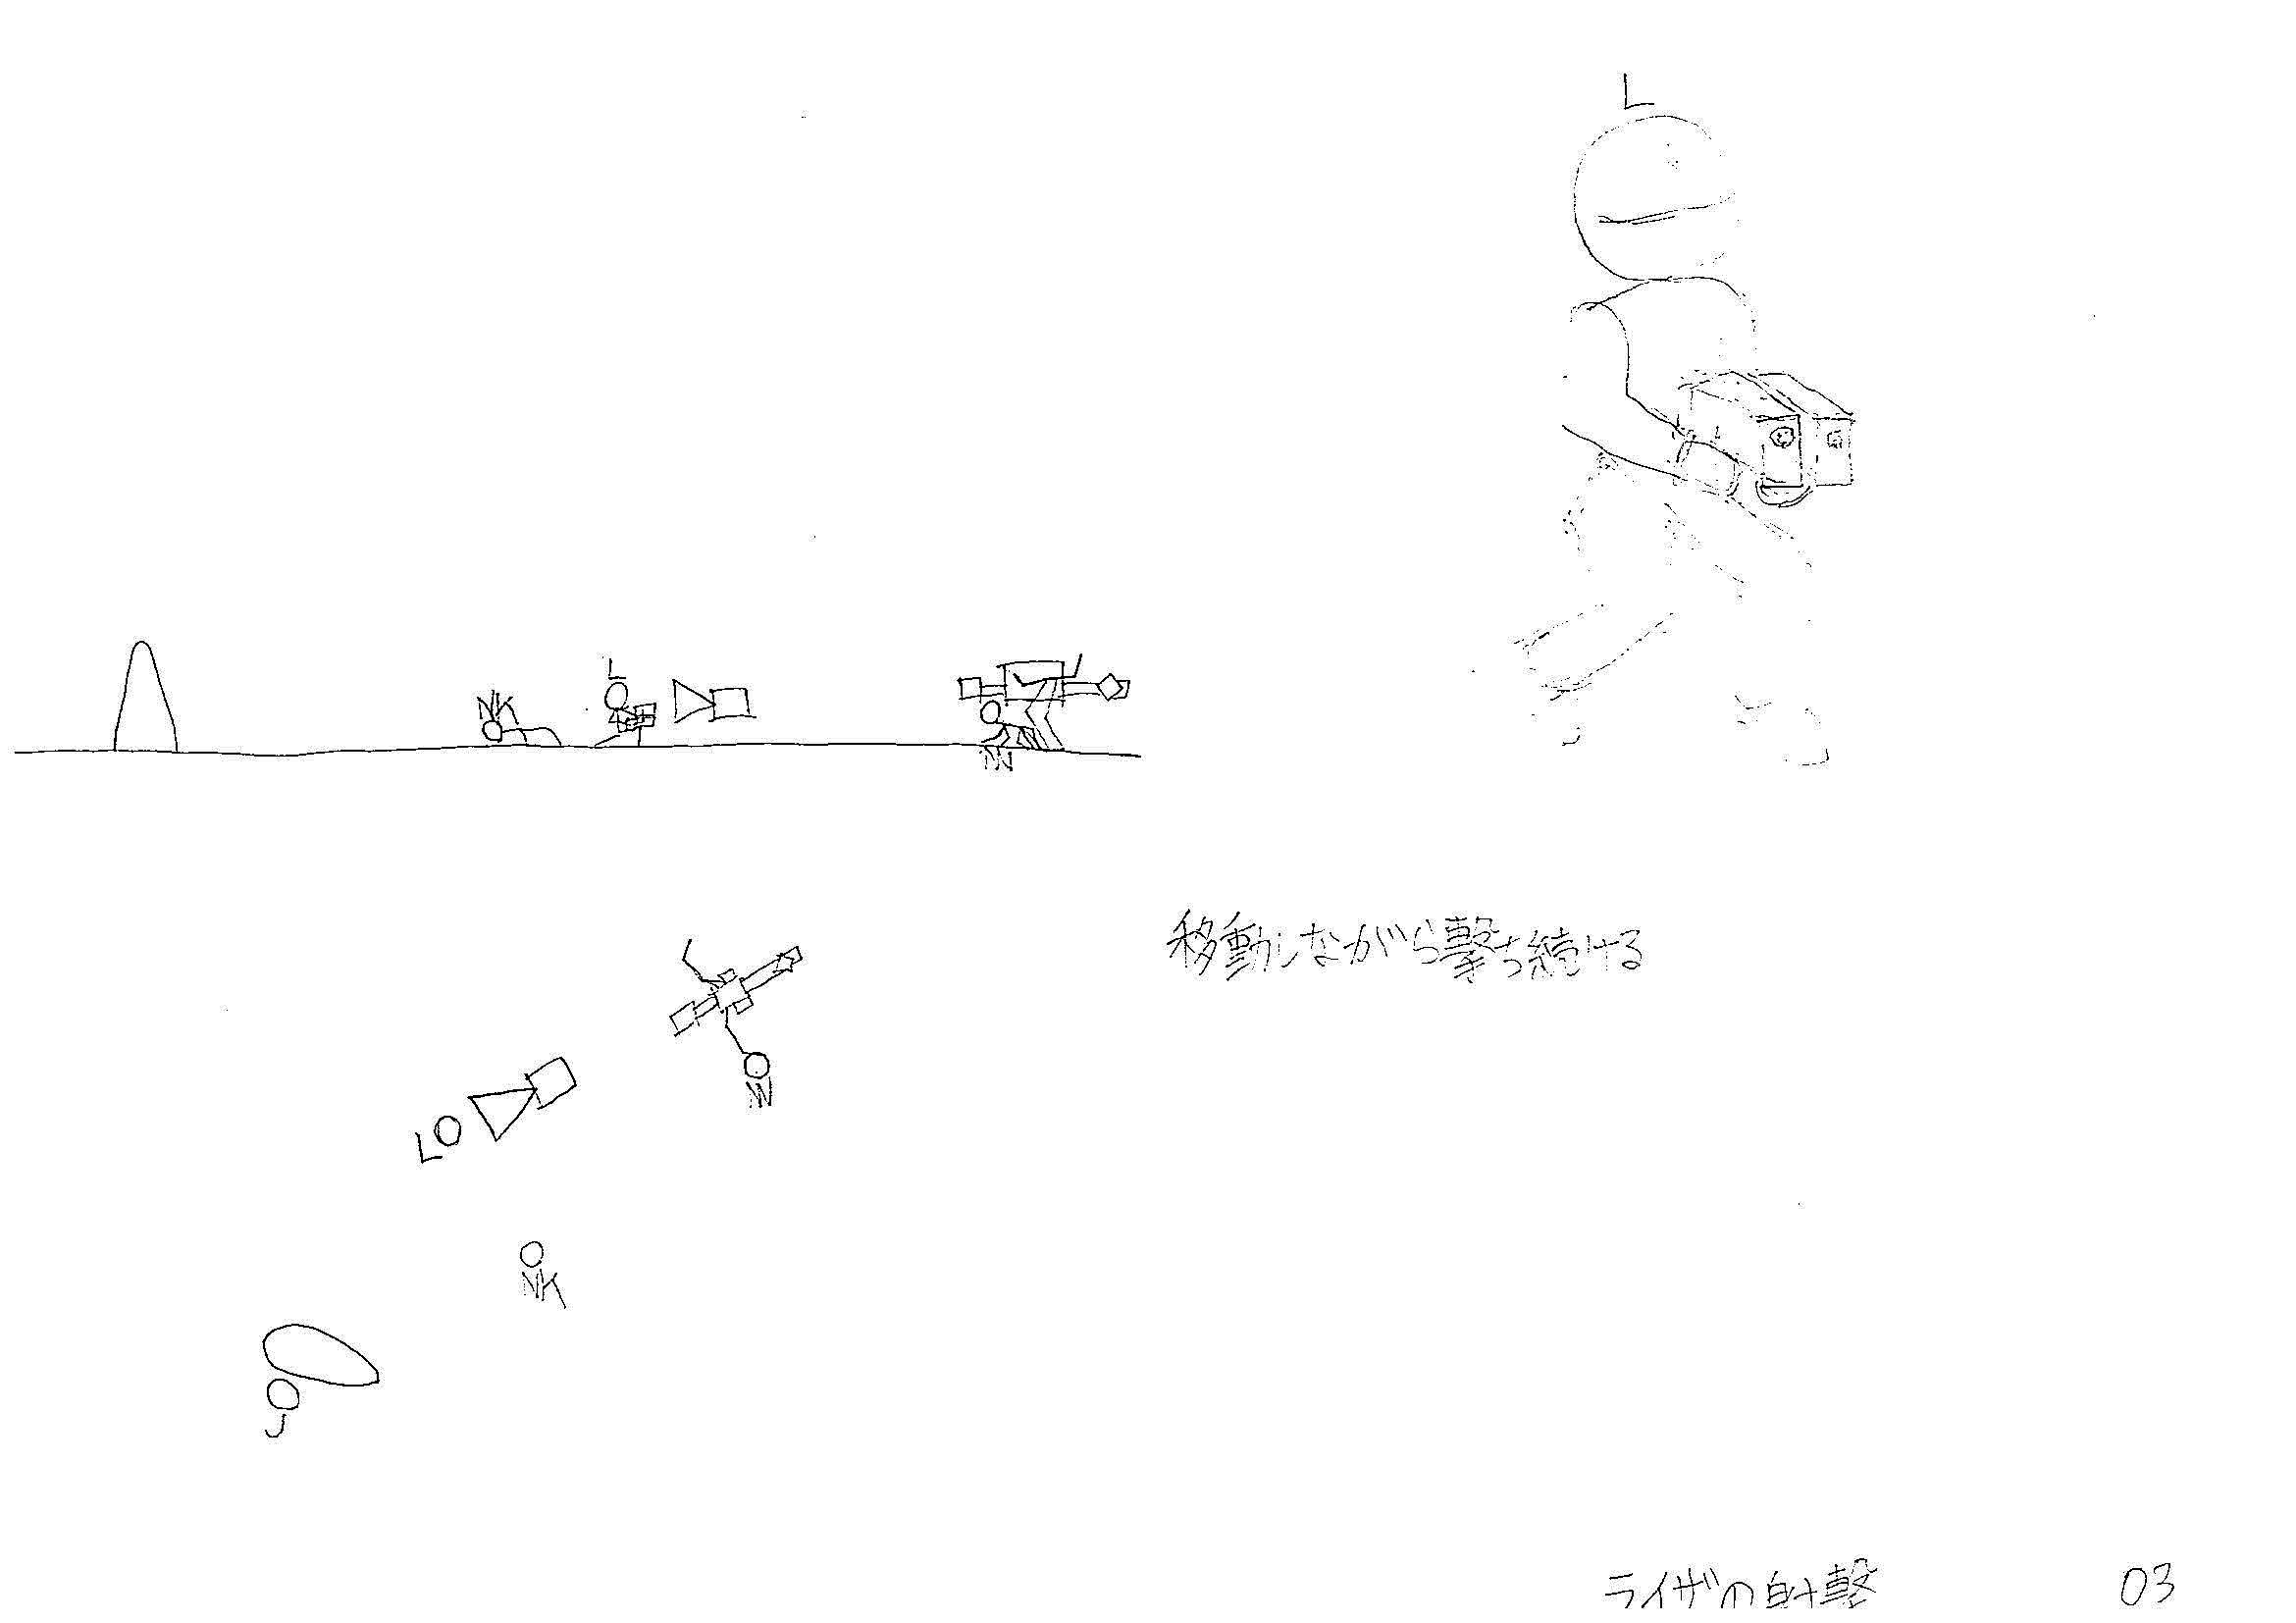 L
L
NK
NN
移動しながら撃ち続ける
NN
L
NK
J
ライザの射撃 03